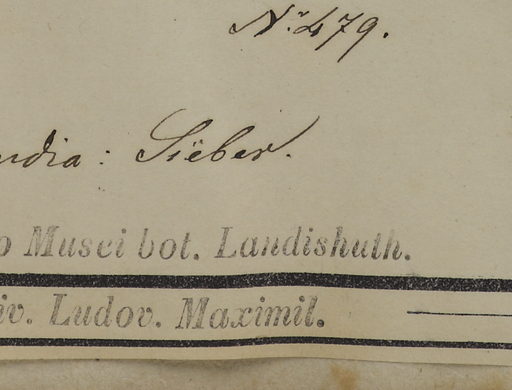 Nr. 479.
ndia: Siëber.
o Musei bot. Landishuth.
iv. Ludov. Maximil.